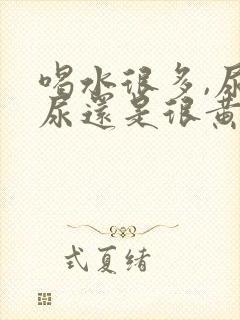 喝水很多,尿
尿還是很黃
式夏緒